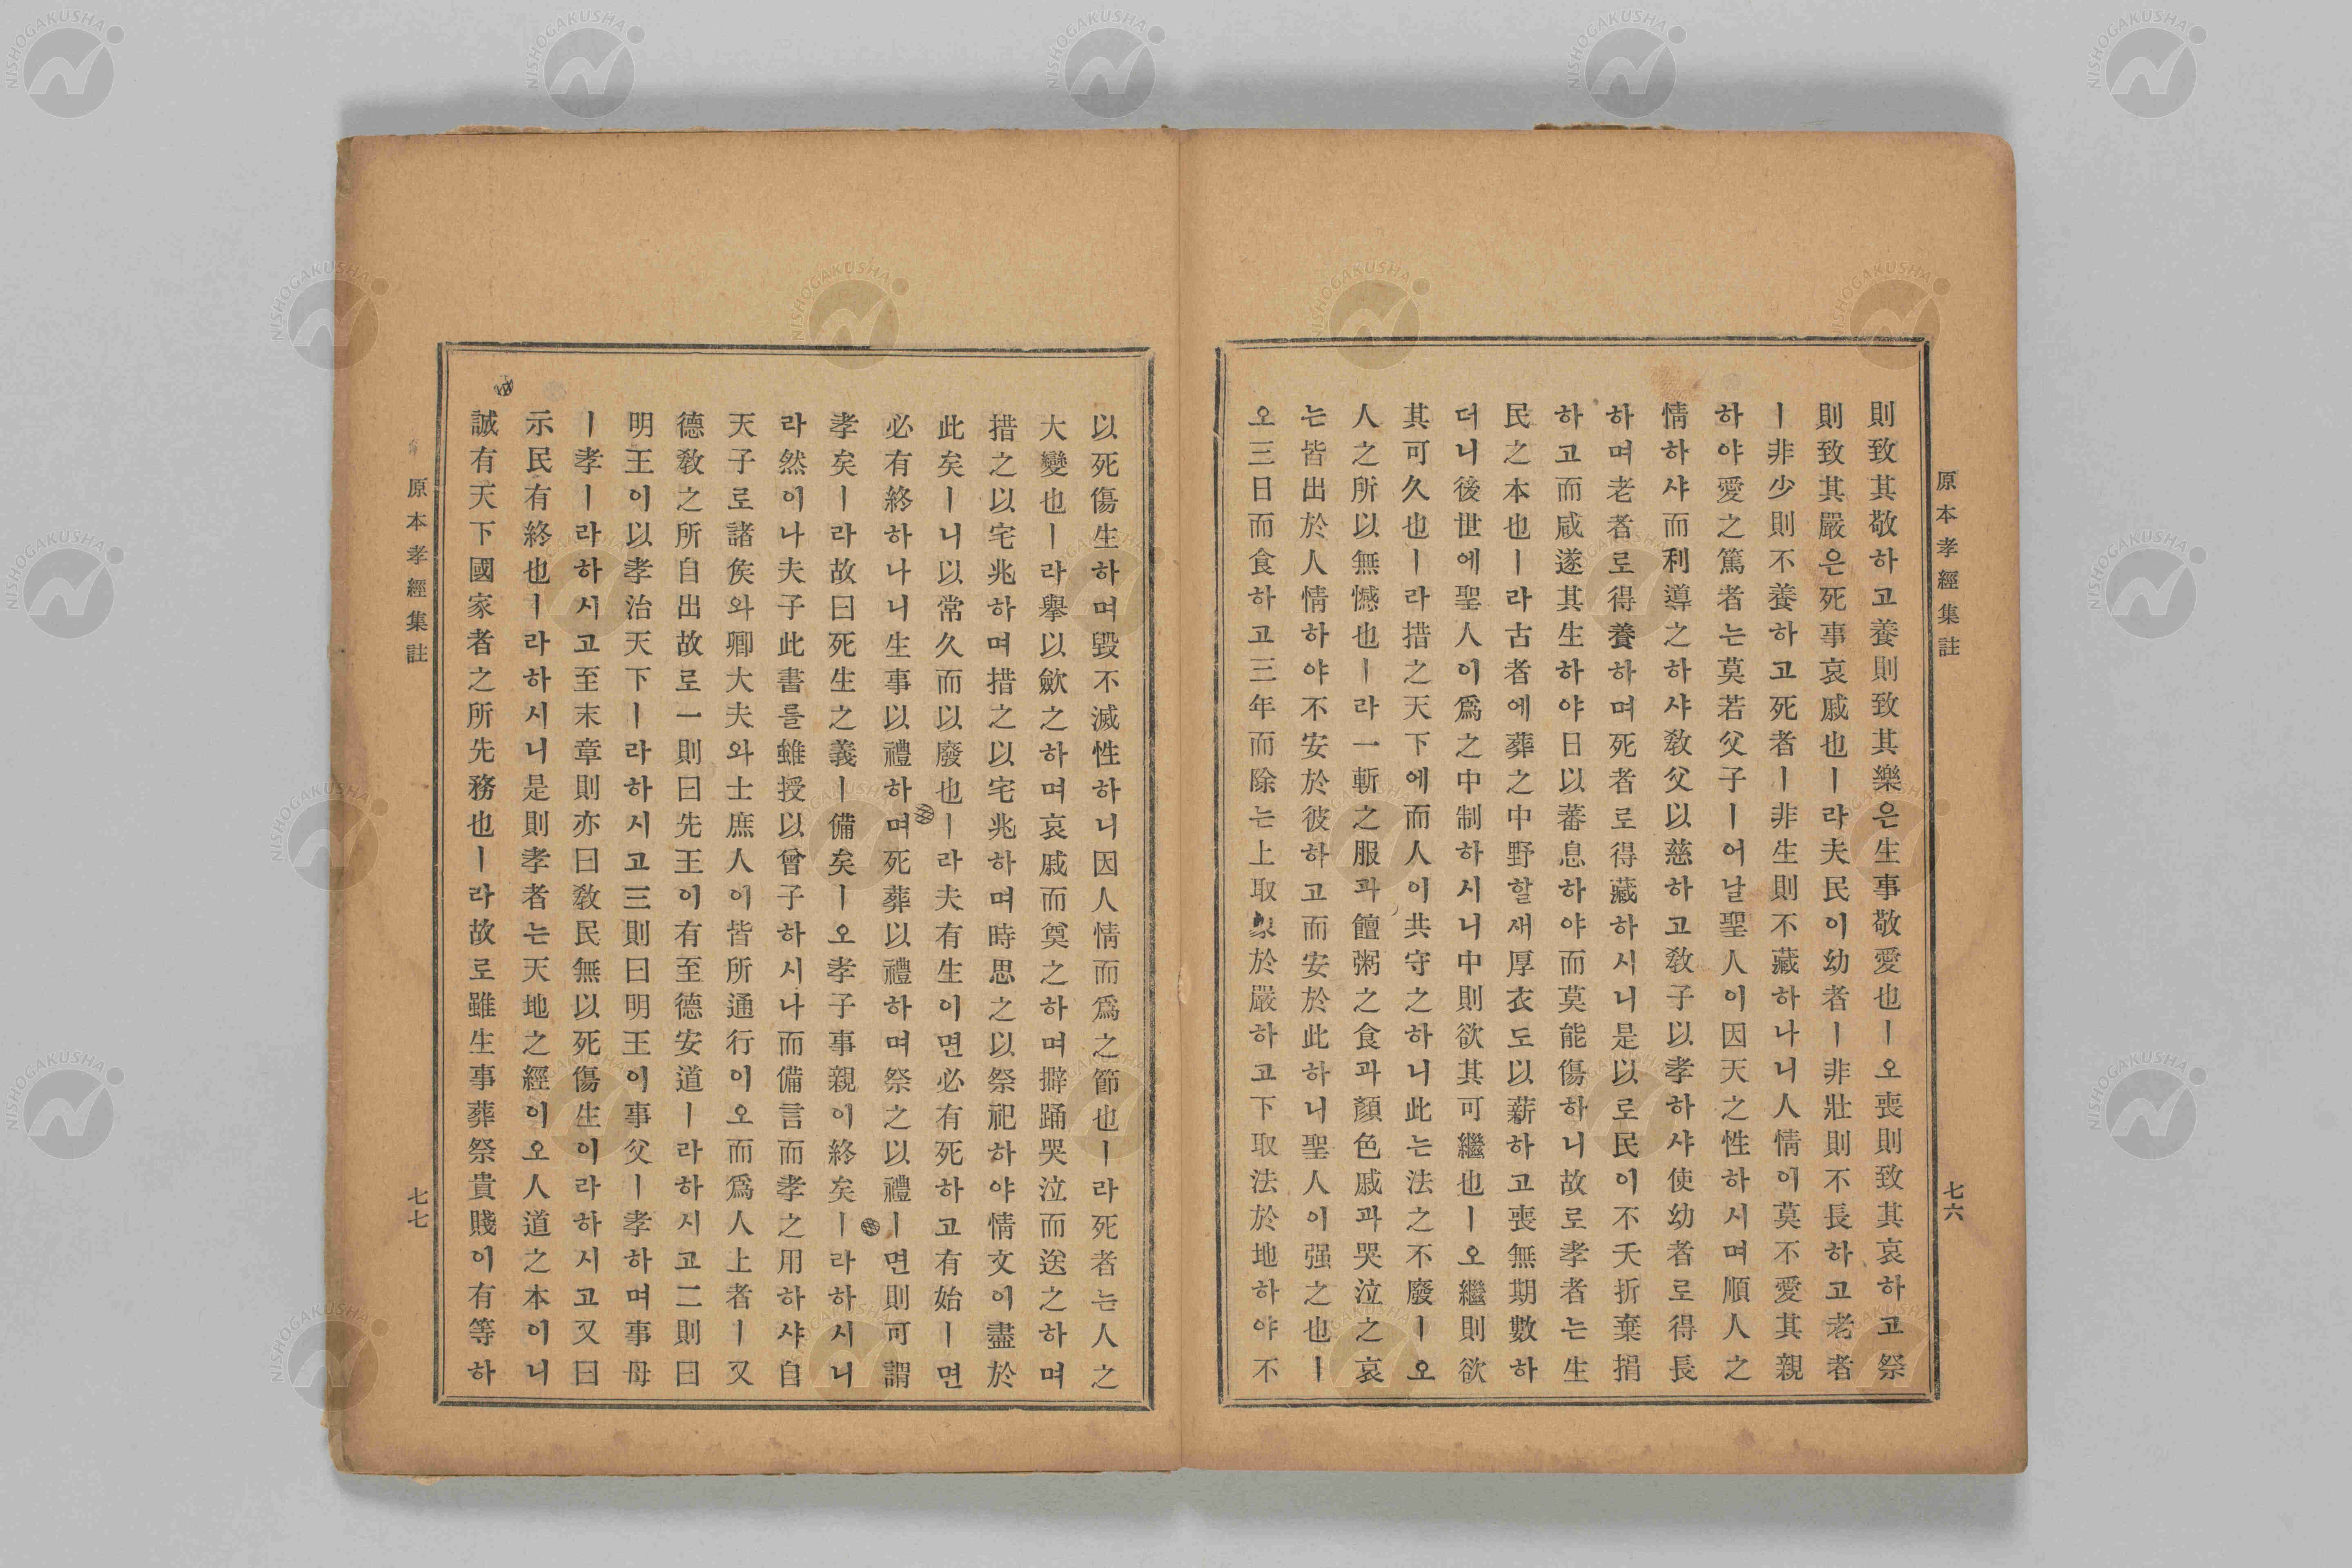 原本孝經集註
七六
則致其敬하고養則致其樂은生事敬愛也ㅣ오喪則致其哀하고祭
則致其嚴은死事哀戚也ㅣ라夫民이幼者ㅣ非壯則不長하고老者
ㅣ非少則不養하고死者ㅣ非生則不藏하나니人情이莫不愛其親
하야愛之篤者는莫若父子ㅣ어날聖人이因天之性하시며順人之
情하샤而利導之하샤敎父以慈하고敎子以孝하샤使幼者로得長
하며老者로得養하며死者로得藏하시니是以로民이不夭折棄捐
하고而咸遂其生하야日以蕃息하야而莫能傷하니故로孝者는生
民之本也ㅣ라古者에葬之中野할새厚衣도以薪하고喪無期數하
더니後世에聖人이爲之中制하시니中則欲其可繼也ㅣ오繼則欲
其可久也ㅣ라措之天下에而人이共守之하니此는法之不廢ㅣ오
人之所以無憾也ㅣ라一斬之服과饘粥之食과顏色戚과哭泣之哀
는皆出於人情하야不安於彼하고而安於此하니聖人이强之也ㅣ
오三日而食하고三年而除는上取象於嚴하고下取法於地하야不
以死傷生하며毀不滅性하니因人情而爲之節也ㅣ라死者는人之
大變也ㅣ라擧以歛之하며哀戚而奠之하며擗踊哭泣而送之하며
措之以宅兆하며措之以宅兆하며時思之以祭祀하야情文이盡於
此矣ㅣ니以常久而以廢也ㅣ라夫有生이면必有死하고有始ㅣ면
必有終하나니生事以禮하며死葬以禮하며祭之以禮ㅣ면則可謂
孝矣ㅣ라故曰死生之義ㅣ備矣ㅣ오孝子事親이終矣ㅣ라하시니
라然이나夫子此書를雖授以曾子하시나而備言而孝之用하샤自
天子로諸矦와卿大夫와士庶人이皆所通行이오而爲人上者ㅣ又
德敎之所自出故로一則曰先王이有至德安道ㅣ라하시고二則曰
明王이以孝治天下ㅣ라하시고三則曰明王이事父ㅣ孝하며事母
ㅣ孝ㅣ라하시고至末章則亦曰敎民無以死傷生이라하시고又曰
示民有終也ㅣ라하시니是則孝者는天地之經이오人道之本이니
誠有天下國家者之所先務也ㅣ라故로雖生事葬祭貴賤이有等하
原本孝經集註
七七